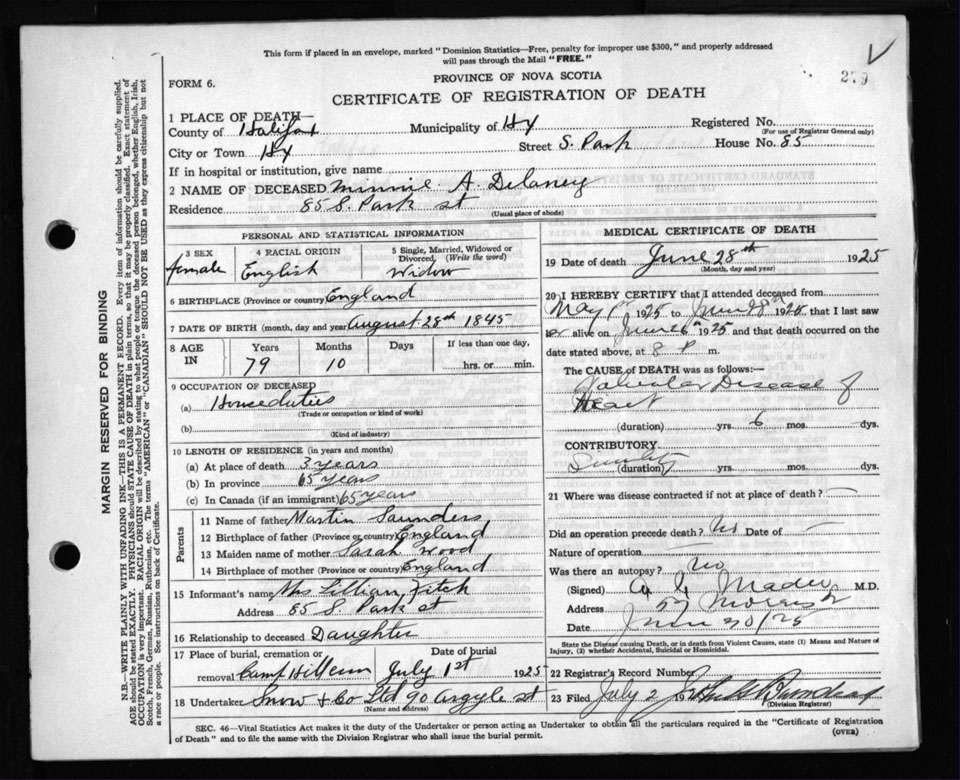 This form if placed in an envelope, marked "Dominion Statistics—Free, penalty for improper use $300," and properly addressed
will pass through the Mail "FREE."
279
PROVINCE OF NOVA SCOTIA
FORM 6.
CERTIFICATE OF REGISTRATION OF DEATH
1 PLACE OF DEATH—
County of Halifax Municipality of Hx Registered No.
(For use of Registrar General only)
City or Town Hx Street S. Park House No. 85
If in hospital or institution, give name
2 NAME OF DECEASED Minnie A. Delaney
Residence 85 S. Park st
(Usual place of abode)
PERSONAL AND STATISTICAL INFORMATION
3 SEX 4 RACIAL ORIGIN 5 Single, Married, Widowed or
Divorced, (Write the word)
female English Widow
6 BIRTHPLACE (Province or country) England
7 DATE OF BIRTH (month, day and year) August 28th 1845
8 AGE IN Years Months Days If less than one day,
79 10 hrs. or min.
9 OCCUPATION OF DECEASED
(a) Houseduties
(Trade or occupation or kind of work)
(b)
(Kind of industry)
10 LENGTH OF RESIDENCE (in years and months)
(a) At place of death 3 years
(b) In province 65 years
(c) In Canada (if an immigrant) 65 years
Parents
11 Name of father Martin Saunders
12 Birthplace of father (Province or country) England
13 Maiden name of mother Sarah Wood
14 Birthplace of mother (Province or country) England
15 Informant's name Mrs Lillian Fitch
Address 85 S. Park st
16 Relationship to deceased Daughter
17 Place of burial, cremation or Date of burial
removal Camp Hill Cem July 1st 1925
18 Undertaker Snow + Co Ltd 90 Argyle st
(Name and address)
MEDICAL CERTIFICATE OF DEATH
19 Date of death June 28th 1925
(Month, day and year)
20 I HEREBY CERTIFY that I attended deceased from
May 1925 to June 28th 1925 that I last saw
her alive on June 26th 1925 and that death occurred on the
date stated above, at 8 P m.
The CAUSE OF DEATH was as follows:—
Valvular Disease of
Heart
(duration) yrs. 6 mos. dys.
CONTRIBUTORY
(duration) yrs. mos. dys.
21 Where was disease contracted if not at place of death? —
Did an operation precede death? No Date of —
Nature of operation —
Was there an autopsy? No
(Signed) Mader M.D.
Address 57 Morris
Date June 30/25
State the Disease causing Death, or in death from Violent Causes, state (1) Means and Nature of
Injury, (2) whether Accidental, Suicidal or Homicidal.
22 Registrar's Record Number
23 Filed July 2 192
(Division Registrar)
SEC. 46—Vital Statistics Act makes it the duty of the Undertaker or person acting as Undertaker to obtain all the particulars required in the "Certificate of Registration
of Death" and to file the same with the Division Registrar who shall issue the burial permit.
(OVER)
MARGIN RESERVED FOR BINDING
N.B.—WRITE PLAINLY WITH UNFADING INK—THIS IS A PERMANENT RECORD. Every item of information should be carefully supplied.
AGE should be stated EXACTLY. PHYSICIANS should STATE CAUSE OF DEATH in plain terms, so that it may be properly classified. Exact statement of
OCCUPATION is very important. RACIAL ORIGIN will be described by stating to what people or tongue the deceased person belonged, whether English, Irish,
Scotch, French, German, Russian, Ruthenian, etc. The terms "AMERICAN" or "CANADIAN" SHOULD NOT BE USED as they express citizenship but not
a race or people. See instructions on back of Certificate.